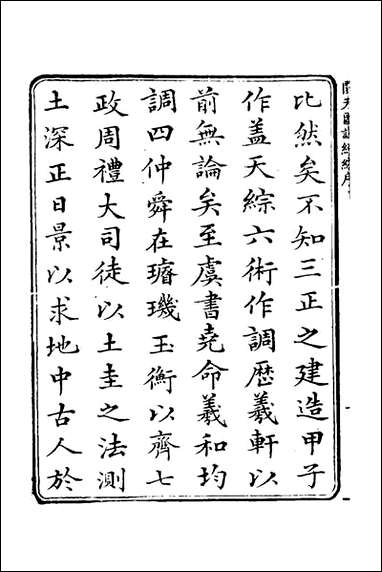 比然矣不知三正之建造甲子
作蓋天綜六術作調歷羲軒以
前無論矣至虞書堯命羲和均
調四仲舜在璿璣玉衡以齊七
政周禮大司徒以土圭之法測
土深正日景以求地中古人於